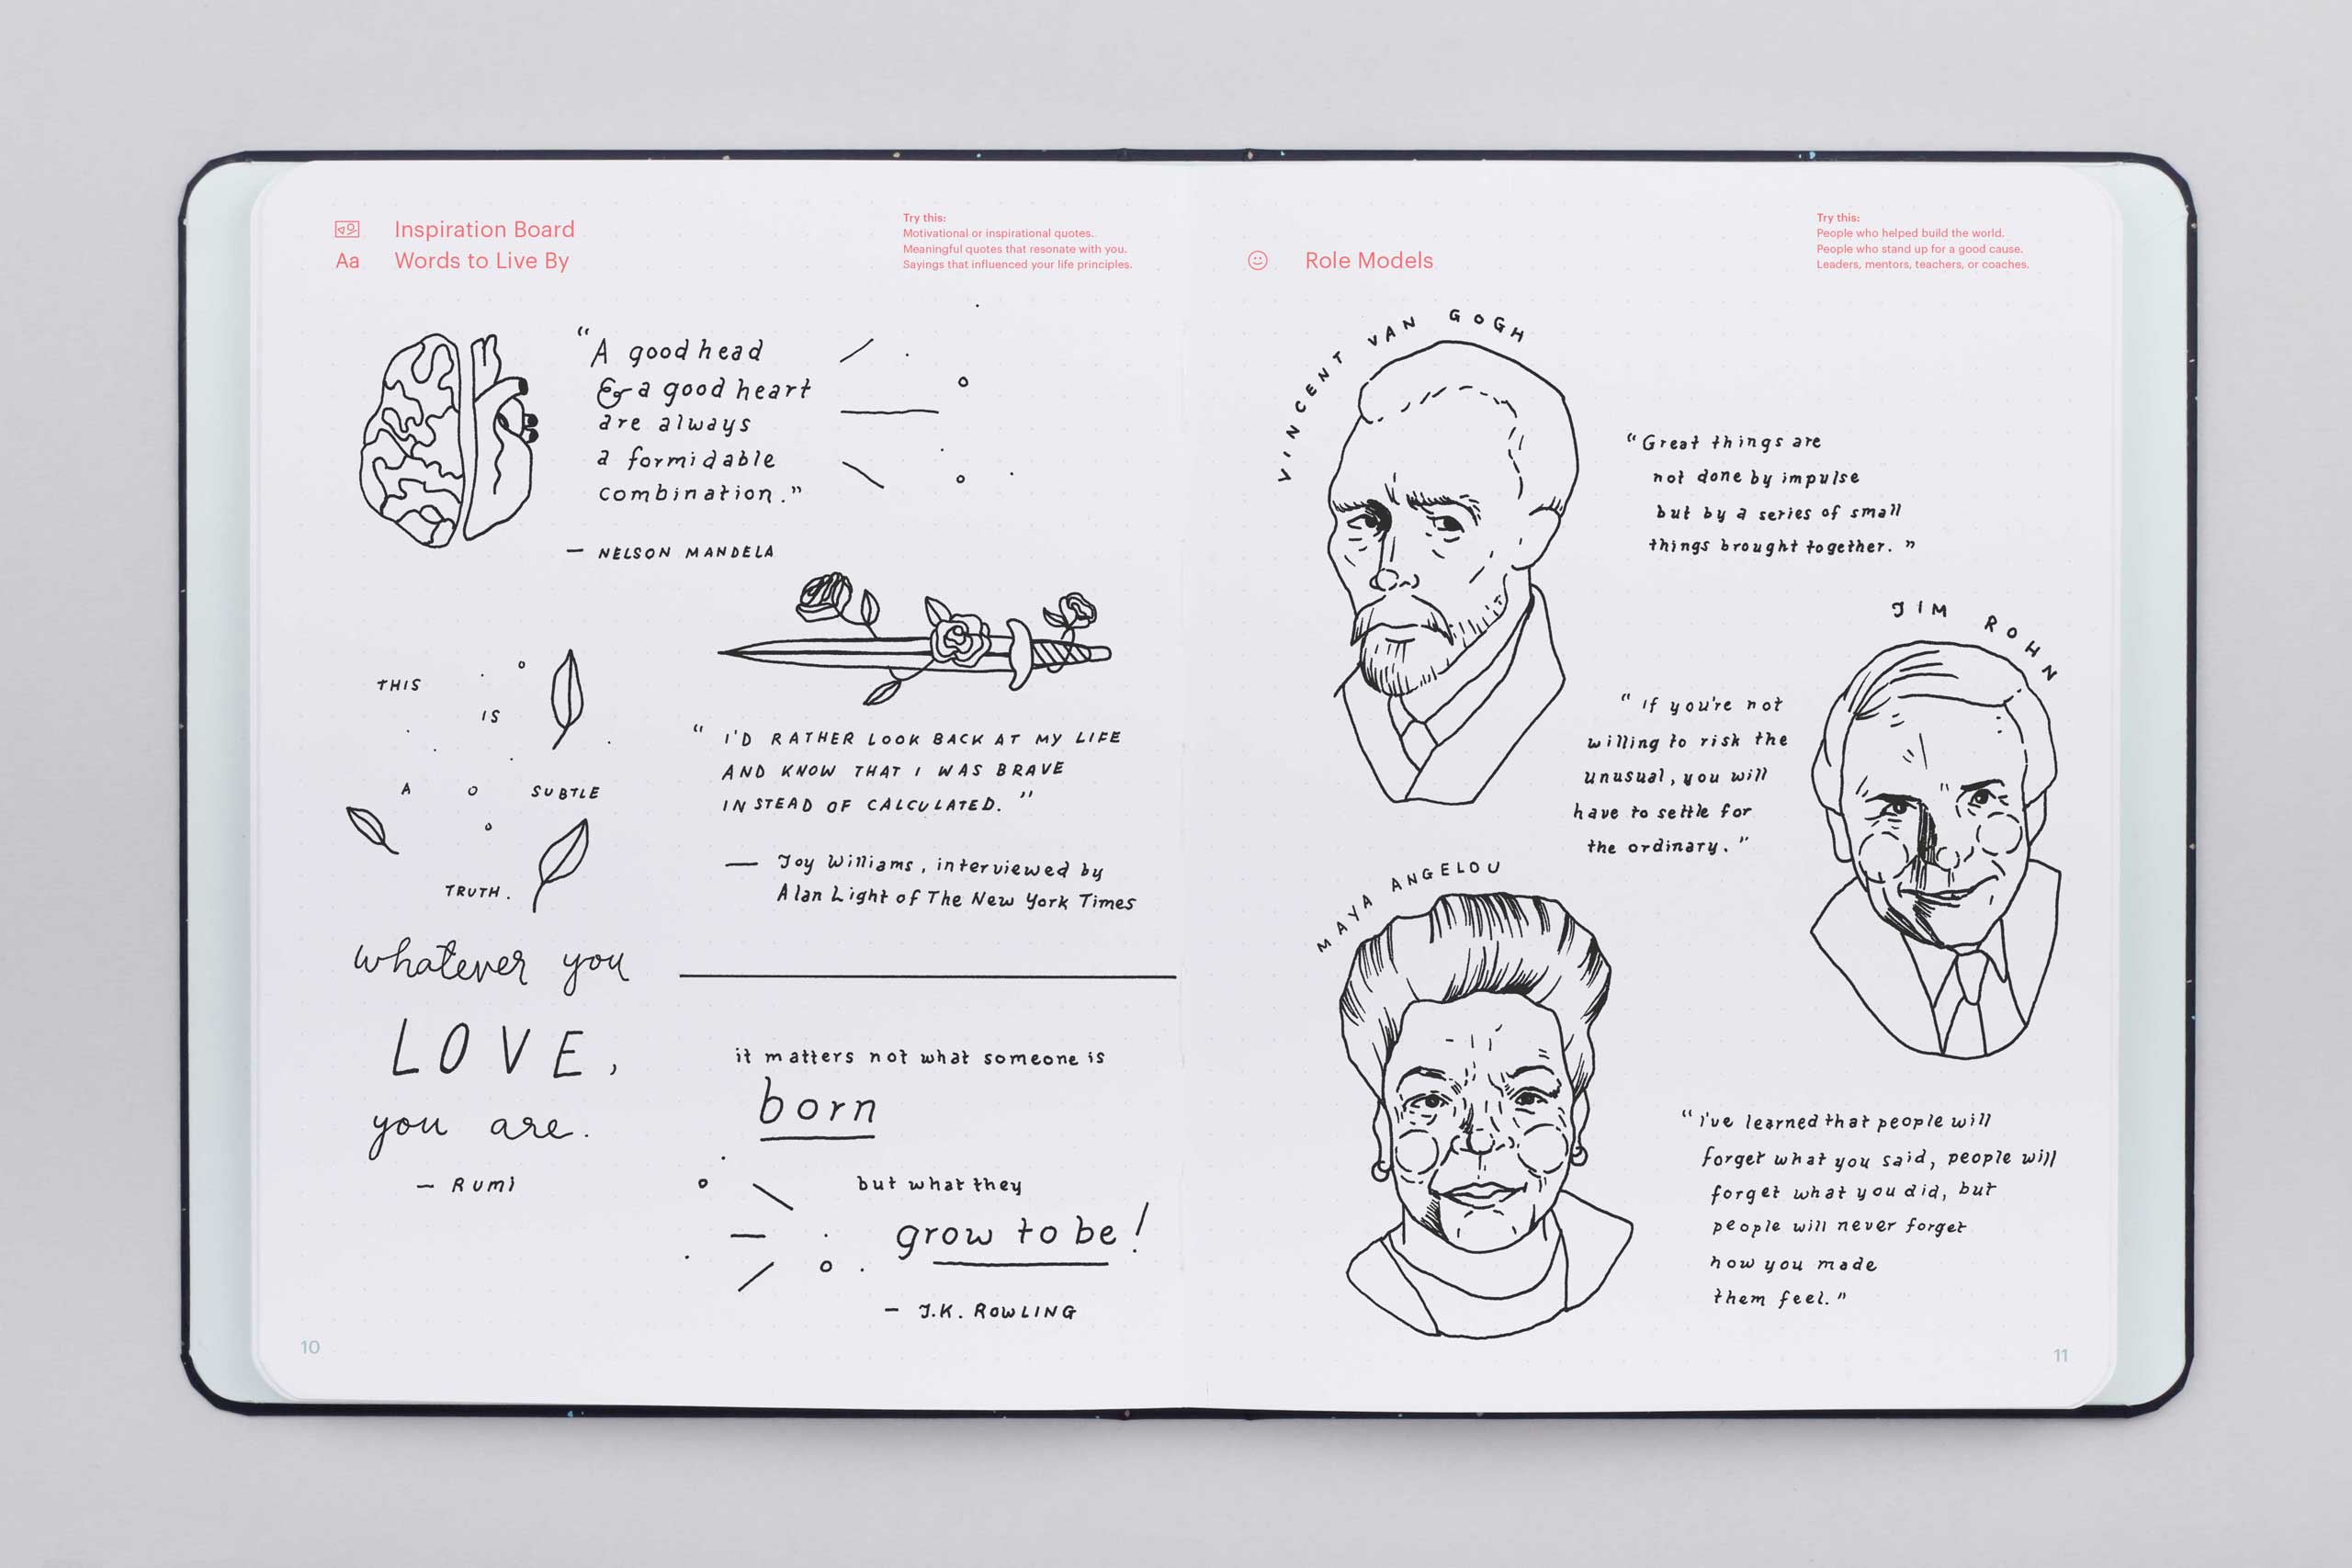 Inspiration Board
Aa Words to Live By
Try this:
Motivational or inspirational quotes.
Meaningful quotes that resonate with you.
Sayings that influenced your life principles.
"A good head
& a good heart
are always
a formidable
combination."
— NELSON MANDELA
THIS
IS
A SUBTLE
TRUTH.
whatever you
LOVE,
you are.
— RUMI
"I'D RATHER LOOK BACK AT MY LIFE
AND KNOW THAT I WAS BRAVE
INSTEAD OF CALCULATED."
— Joy Williams, interviewed by
Alan Light of The New York Times
it matters not what someone is
born
but what they
grow to be!
— J.K. ROWLING
10
Role Models
Try this:
People who helped build the world.
People who stand up for a good cause.
Leaders, mentors, teachers, or coaches.
VINCENT VAN GOGH
"Great things are
not done by impulse
but by a series of small
things brought together."
JIM ROHN
"If you're not
willing to risk the
unusual, you will
have to settle for
the ordinary."
MAYA ANGELOU
"i've learned that people will
forget what you said, people will
forget what you did, but
people will never forget
how you made
them feel."
11